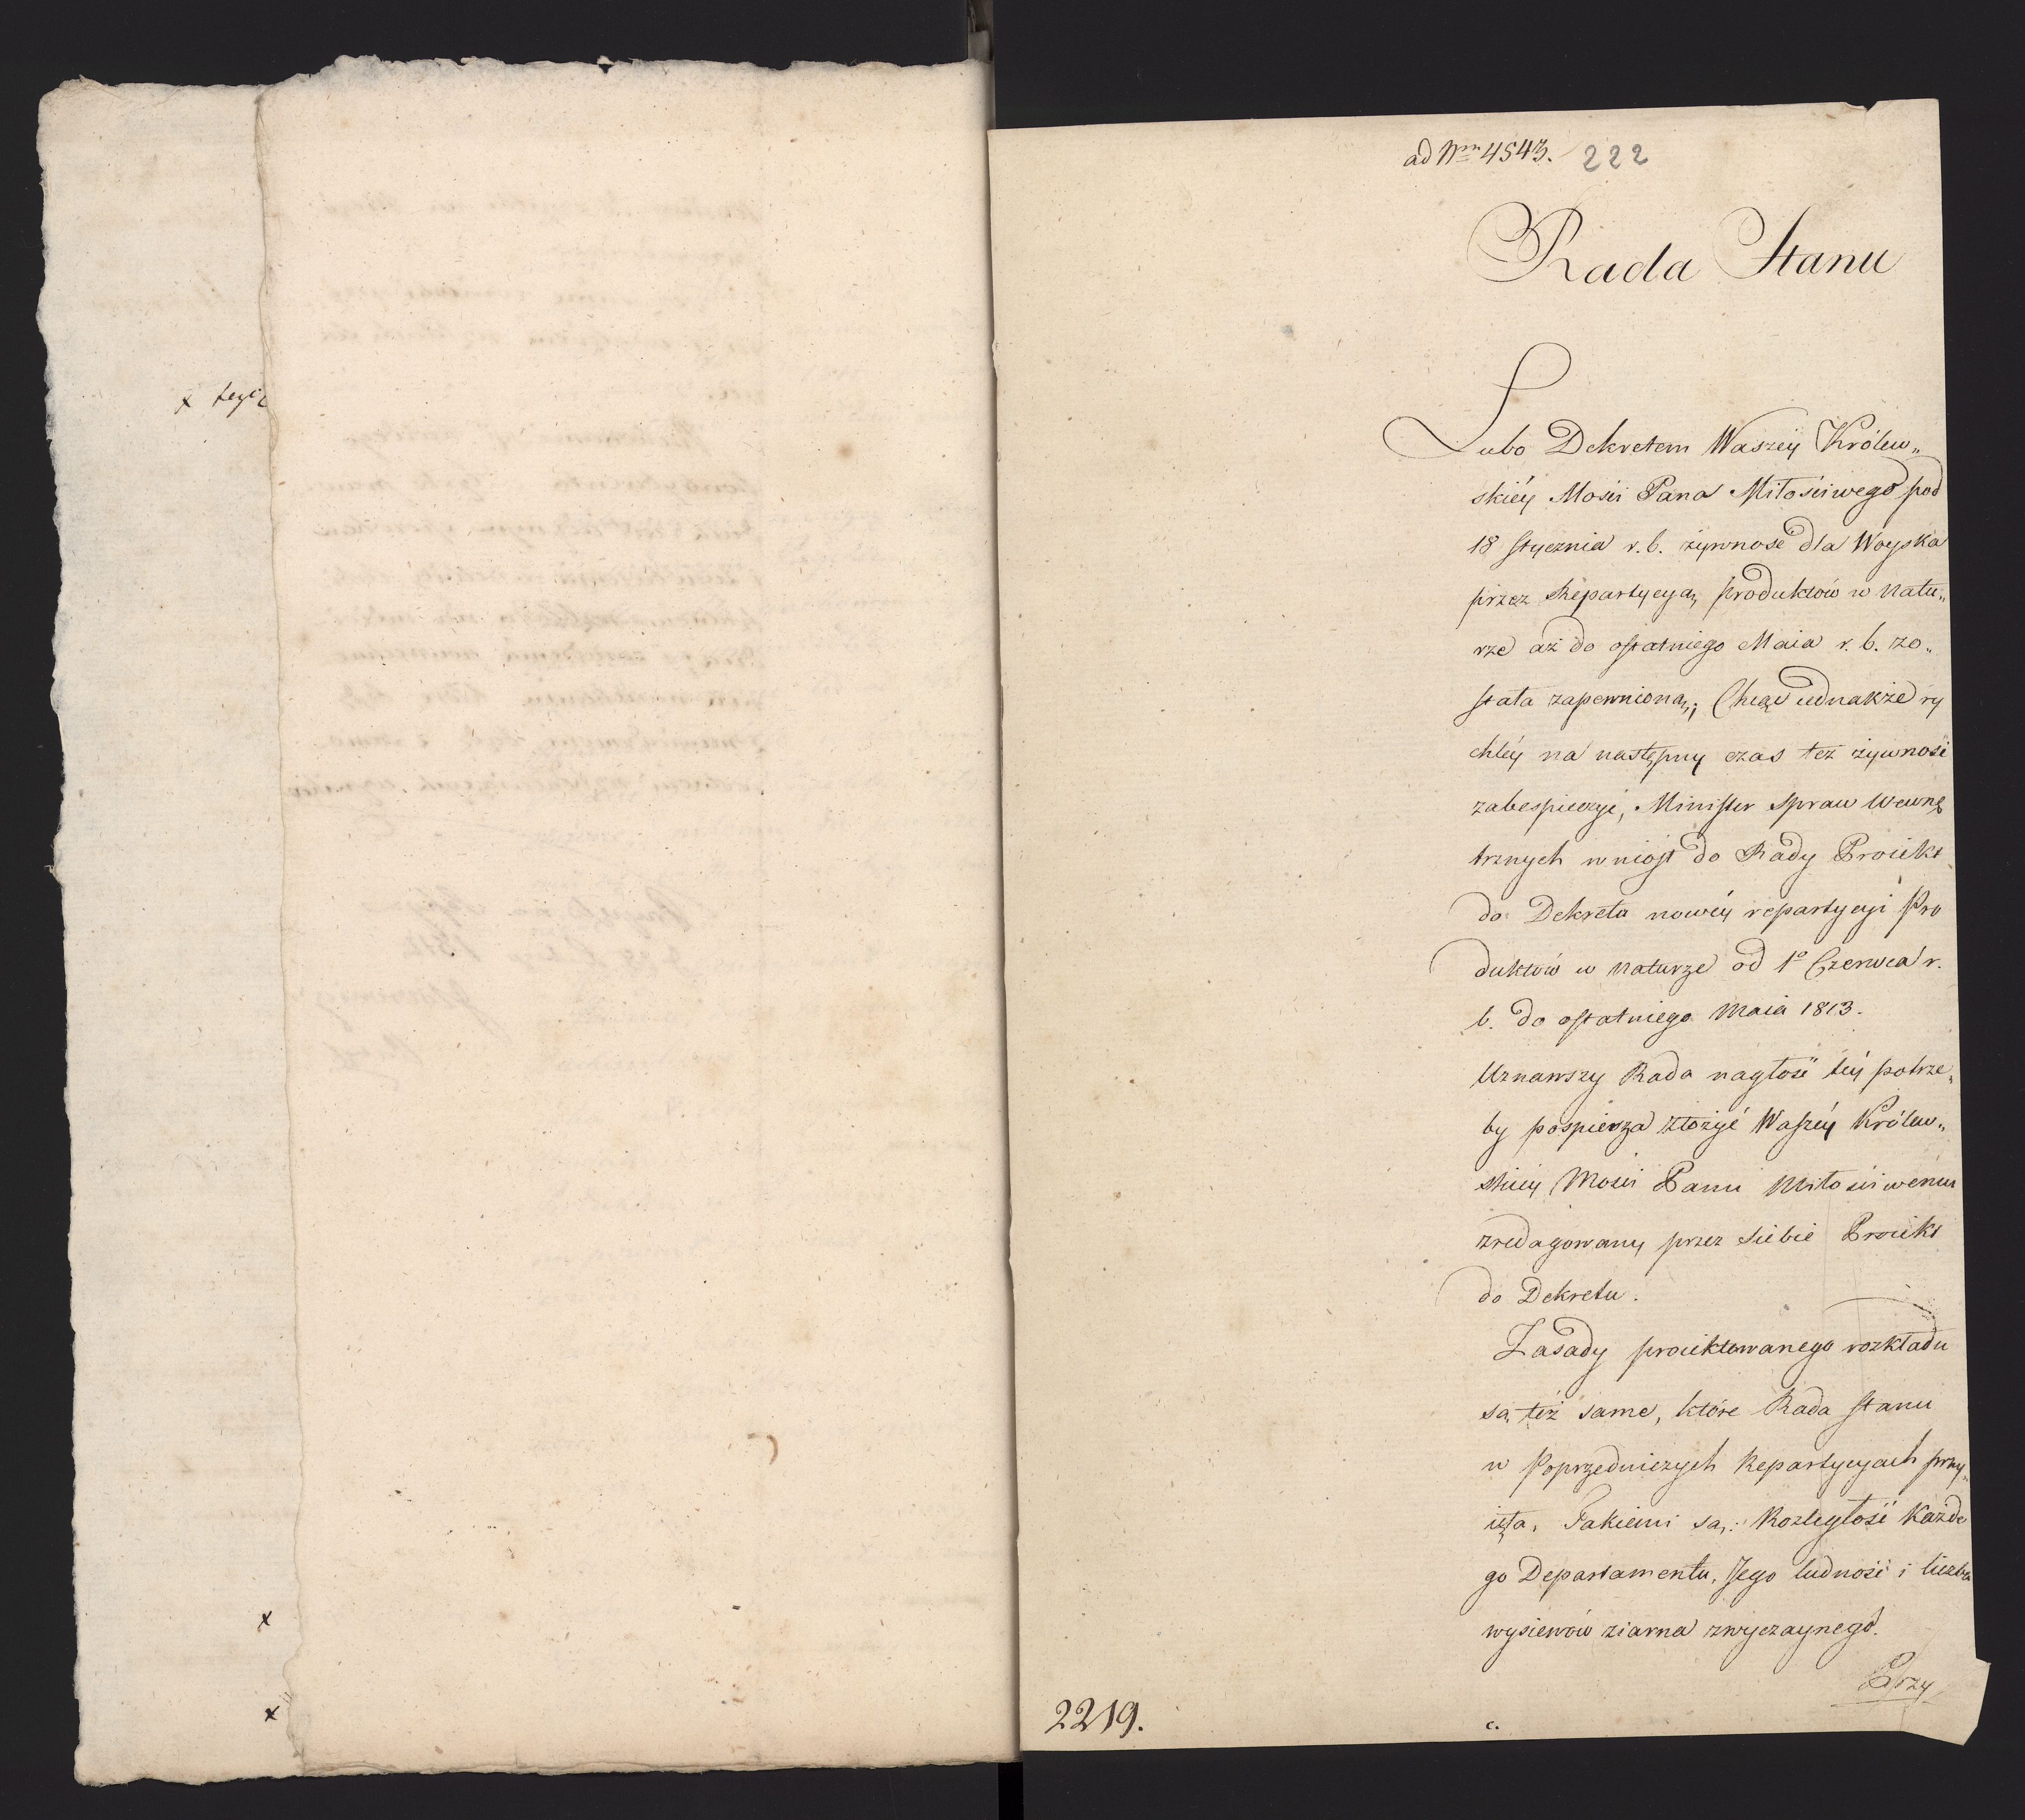 x
x
x
ad Nrm 4543. 222
Rada Stanu
Lubo Dekretem Waszéy Królew„
skiéy Mości Pana Miłościwego pod
18 Stycznia r. b. żywnosc dla Woyska
przez Repartycyą, produktów w natu„
rze aż do ostatniego Maia r. b. zo„
stała zapewnioną; Chcąc iednakże ry
chléy na następny czas też żywność
zabespieczyć, Minister Spraw Wewnę
trznych wniosł do Rady Proiekt
do Dekretu nowéy repartycyi Pro
duktów w naturze od 1o Czerwca r.
b. do ostatniego Maia 1813.
Uznawszy Rada nagłość téy potrze„
by pospiesza złożyć Waszéy Królew„
skiey Mości Panu Miłościwemu
zredagowany przez siebie Proiekt
do Dekretu.
Zasady proiektowanego rozkładu
są też same, które Rada Stanu
w Poprzedniczych Repartycyach przy„
ięła, Takiemi są: Rozległość Każde
go Departamentu, Jego ludność i liczba
wysiewów ziarna zwyczaynego.
Przy
2219.
c.